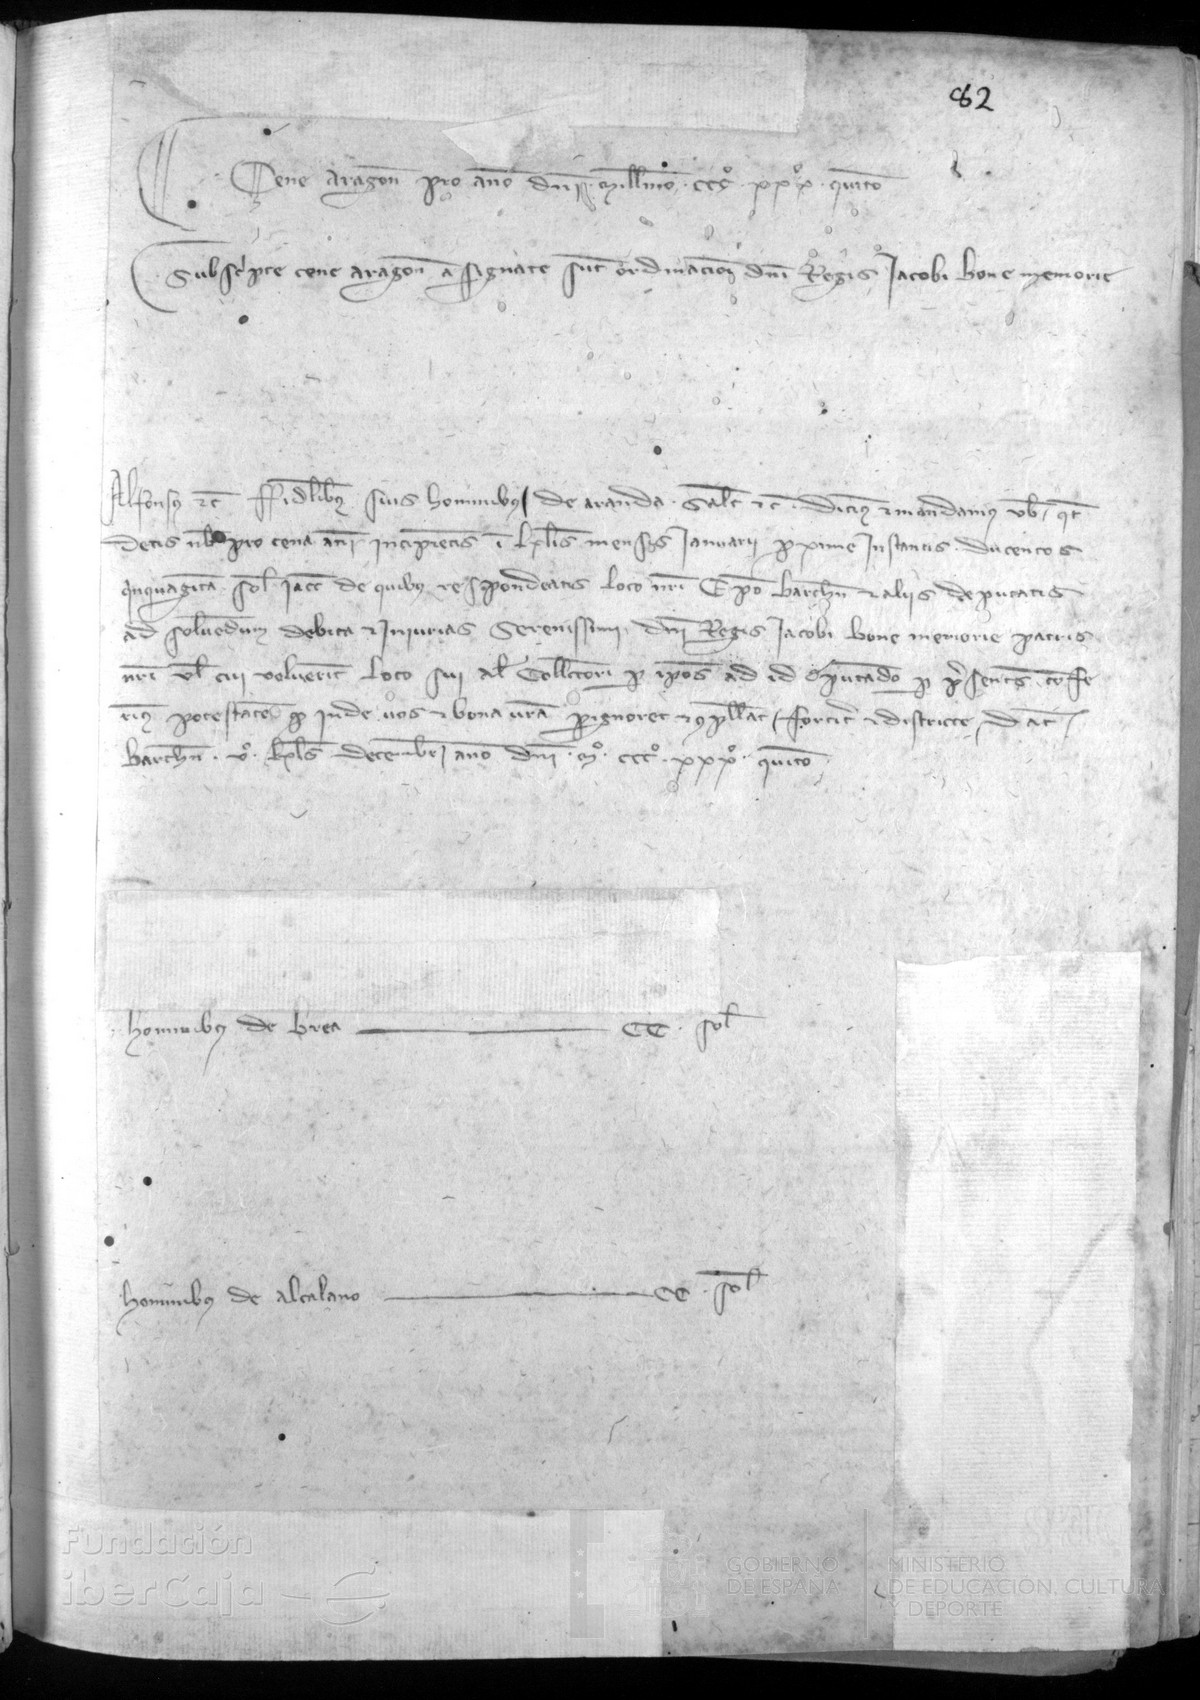 82
Cene Aragon pro año dni millmo ccc° xxx° quinto
Subscripte cene aragon assignate sut ordinacioni dni Regis Jacobi bone memorie
Alfonsus etc ffidelibus suis hominibus de aranda salt etc dicimus et mandamus vob qt
detis nob pro cena anni incipietis i kls mensis Januarii pxime Instantis ducentos
quinquaginta sol jacc de quibus respondeatis loco nri Epo barchn et aliis deputatis
ad solvedum debita et Iniurias Serenissimi dni Regis Jacobi bone memorie patris
nri vel cui voluerit loco sui al Collctori p ipos ad id deputado p psentes confe
rimus potestate qd inde vos et bona vra pignoret et compellat fortit et districte dat
barchn v° kls decembr año dni m° ccc° xxx° quinto
hominibus de brea CC sol
hominibus de alcalano CC sol
Fundación
iberCaja
GOBIERNO
DE ESPAÑA
MINISTERIO
DE EDUCACIÓN, CULTURA
Y DEPORTE